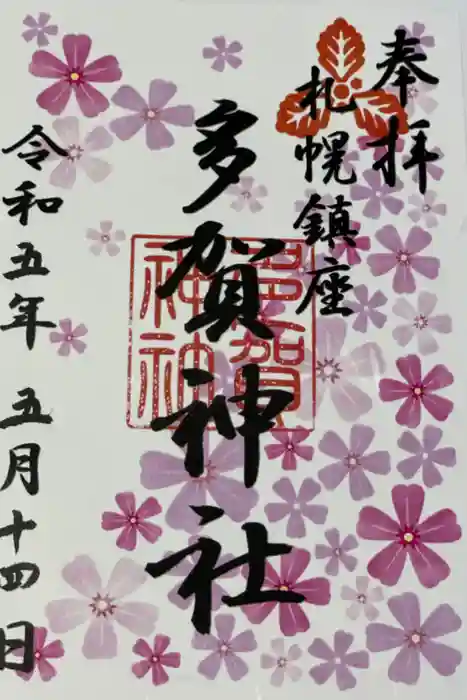 奉拝
札幌鎮座
多賀神社
多賀
神社
令和五年 五月十四日